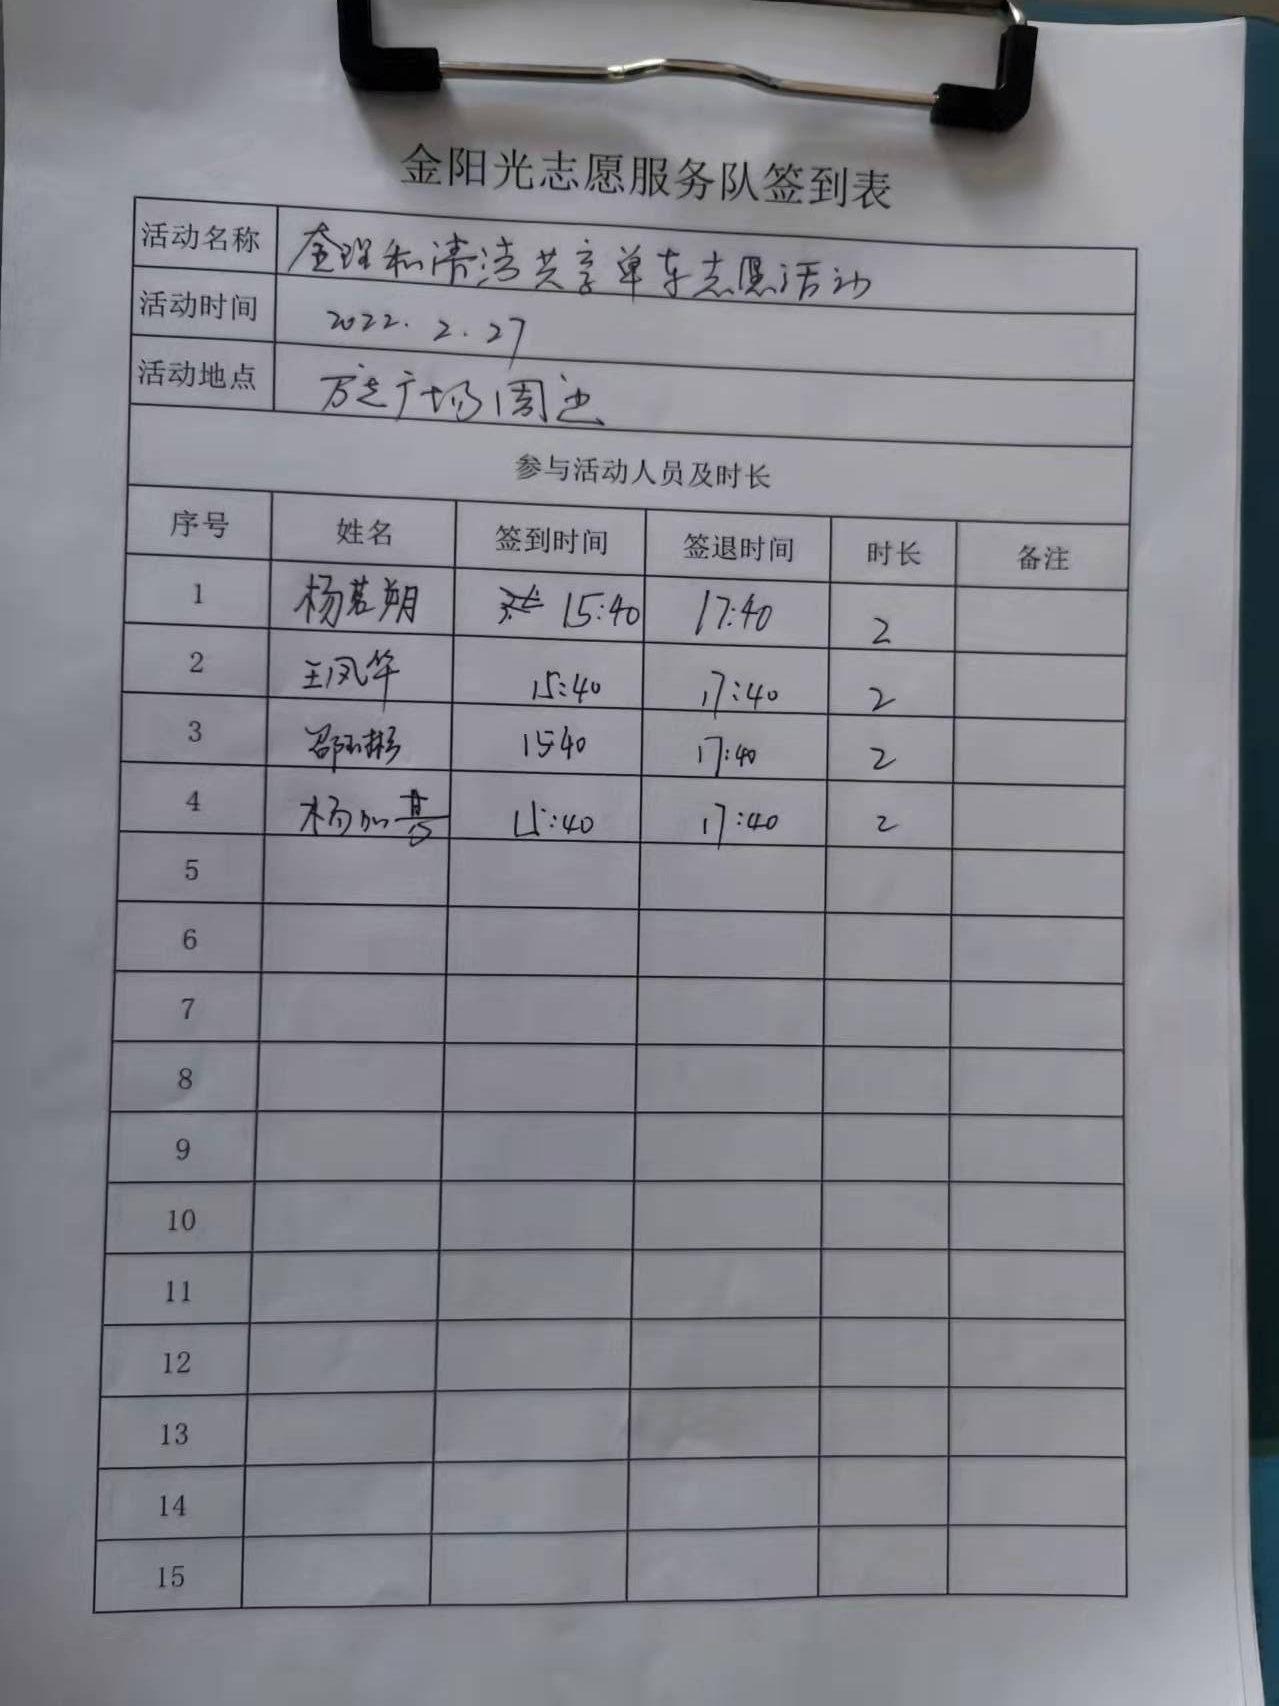 金阳光志愿服务队签到表
活动名称 整理和清洁共享单车志愿活动
活动时间 2022.2.27
活动地点 万达广场周边
参与活动人员及时长
序号 姓名 签到时间 签退时间 时长 备注
1 杨茗朔 15:40 17:40 2
2 王凤华 15:40 17:40 2
3 邵玉彬 1540 17:40 2
4 杨加 15:40 17:40 2
5
6
7
8
9
10
11
12
13
14
15